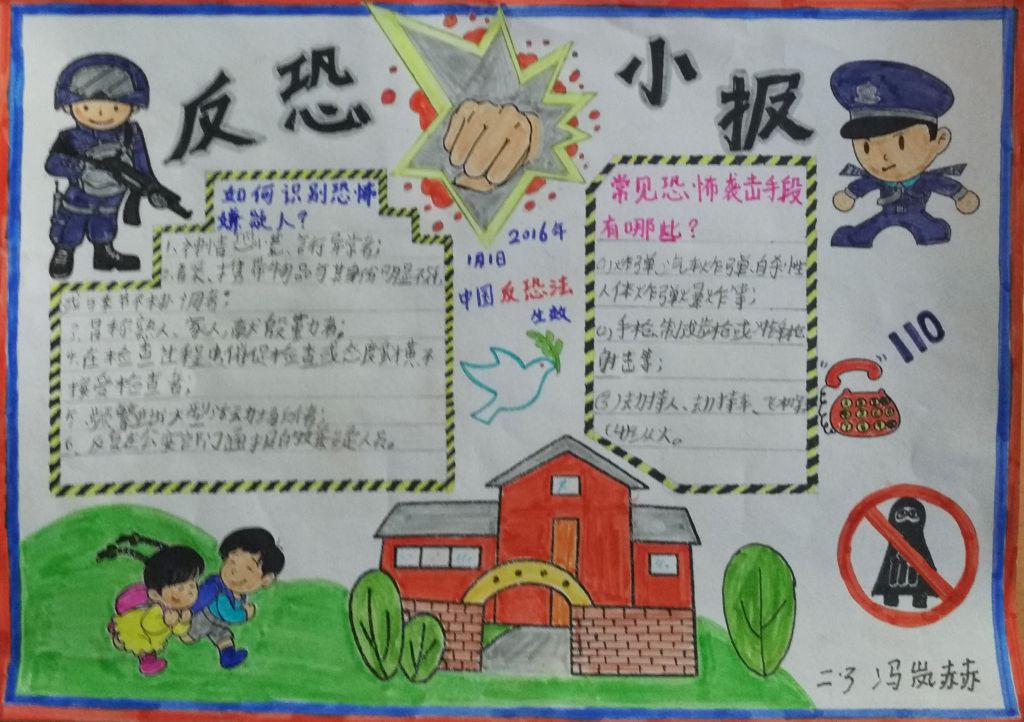 反恐小报
如何识别恐怖
嫌疑人？
1.神情恐慌、言行异常者;
2.着装、携带物品与其身份明显不符,
或与季节不协调者;
3.冒称熟人、
4.在检查过程中,催促检查或态度蛮横不
接受检查者;
5.频繁进出大型活动场所者;
2016年
1月1日
中国反恐法
生效
常见恐怖袭击手段
有哪些？
(1)炸弹、汽车炸弹、自杀性
人体炸弹爆炸等;
(2)手枪、制式步枪或冲锋枪
射击等;
(3)劫持人、劫持车、飞机等
(4)纵火。
110
二.3 冯岚赫